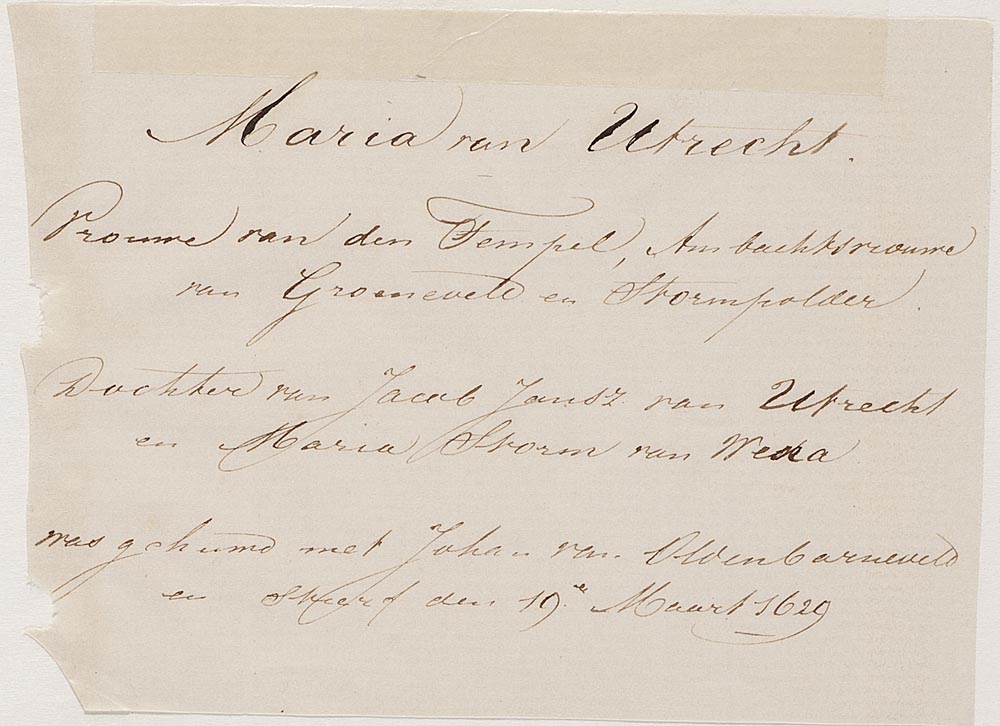 Maria van Utrecht.
Vrouwe van den Tempel, Ambachtsvrouwe
van Groeneveld en Stormpolder.
Dochter van Jacob Jansz van Utrecht
en Maria Storm van Wena
was gehuwd met Johan van Oldenbarneveld
en stierf den 19.en Maart 1629